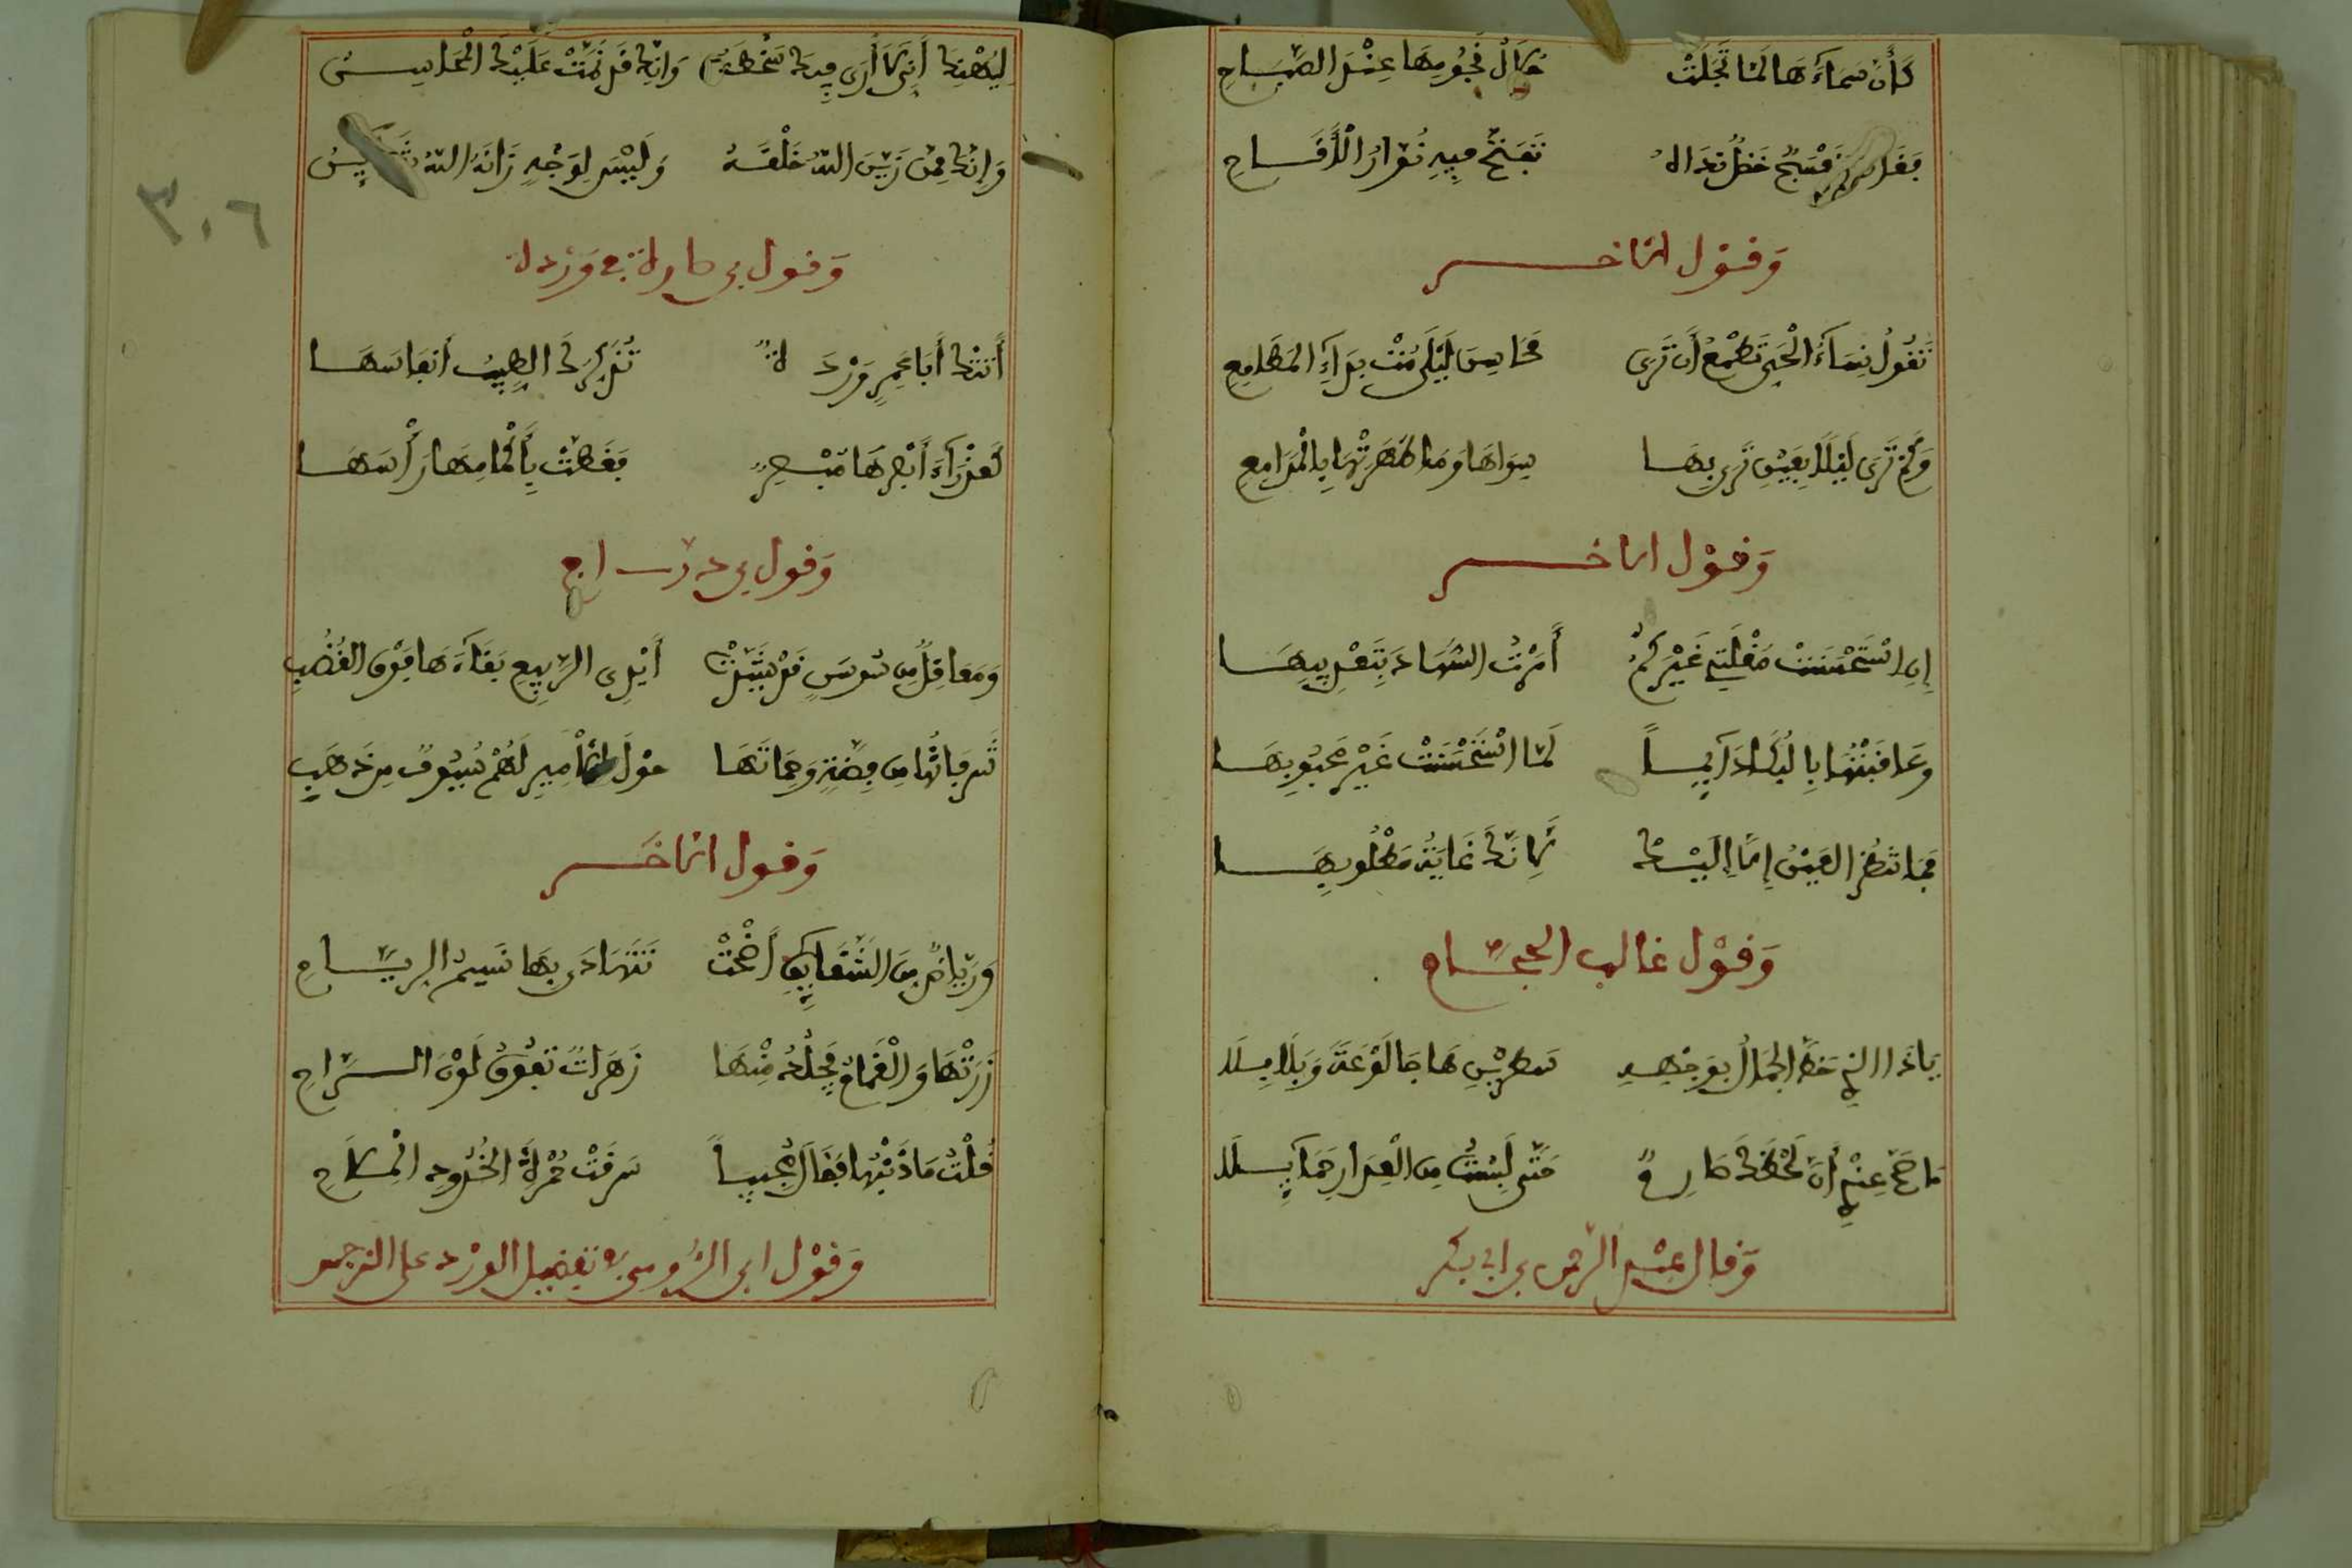 كَأَنَّ سَمَاءَهَا لَمَّا تَجَلَّتْ خِلَالَ نُجُومِهَا عِنْدَ الصَّبَاحِ
بنفسج خَضِلٌ نَدَاهُ تَفَتَّحَ فِيهِ نُوَّارُ الْأَقَاحِ
وَقَوْل الآخر
تَقُولُ نِسَاءُ الْحَيِّ تَطْمَعُ أَن تَرَى مَحَاسِنَ لَيْلَى مُتْ بِدَاءِ المَطَامِعِ
وَكَيْفَ تَرَى لَيْلَى بِعَيْنٍ تَرَى بِهَا سِوَاهَا وَمَا طَهَّرْتَهَا بِالْمَدَامِعِ
وَقَوْل الآخر
إِنِ اسْتَحْسَنَتْ مُقْلَتِي غَيْرَكُمْ أَمَرْتُ السُّهَادَ بِتَعْذِيبِهَا
وَعَاقَبْتُهَا بِالْبُكَا دَائِماً لَمَّا اسْتَحْسَنَتْ غَيْرَ مَحْبُوبِهَا
فَمَا تنظر العَيْنُ إِلَّا إِلَيْك لِأَنَّكَ غَايَةُ مَطْلُوبِهَا
وَقَوْل غالب الحجّام
يَا ذَا الذِي خَطَّ الجَمَالُ بِوَجْهِهِ سَطْرَيْنِ هَاجَا لَوْعَةً وَبَلَابِلَا
مَا صَحَّ عِنْدِي أَنَّ لَحْظَكَ صَارِمٌ حَتَّى لَبِسْتَ مِنَ الْعِذَارِ حَمَائِلَا
وَقَال عَبْد الرّحمن بن ابي بكر
لِيَهْنِكَ أَنِّي لَا أَرَى فِيكَ وَانَّكَ قَدْ تَمَّتْ عَلَيْكَ الْمَحَاسِنُ
وَإِنَّكَ مِمَّن زَيَّنَ اللهُ خَلْقَهُ وَلَيْسَ لِوَجْهٍ زَانَهُ اللهُ
وَقَول في باكورة وردة
أَتَتْكَ أَبَا عَمْرٍ وَرْدَةٌ تُذَكِّرُكَ الطِّيبَ أَنفَاسُهَا
كَعَذْرَاءَ أَبْصَرَهَا مُبْصِرٌ فَغَطَّتْ بِأَكْمَامِهَا رَأْسَهَا
وَقَول بن دَرّاج
وَمَعَاقِلٌ مِن سَوْسَنٍ قَدْ شَيَّدَتْ أَيْدِي الرَّبِيعِ بِنَاءَهَا فَوْقَ القُضُبِ
شُرُفَاتُهَا مِن فِضَّةٍ وَحُمَاتُهَا حَوْلَ الْأَمِيرِ لَهُمْ سُيُوفٌ مِن ذَهَبِ
وَقَول الآخر
وَرِيَاضٍ مِنَ الشَّقَائِقِ أَضْحَتْ تَتَهَادَى بِهَا نَسِيمُ الرِّيَاحِ
زُرْتُهَا وَالْغَمَامُ يَجْلُدُ مِنْهَا زَهَرَاتٍ تَفُوقُ لَوْنَ الرَّاحِ
قُلْتُ مَا ذَنْبُهَا فَقَالَ مُجِيباً سَرَقَتْ حُمْرَةَ الْخُدُودِ الْمِلَاحِ
وَقَوْل ابن الرُّومي في تفضيل الورد على النرجس
٣٠٦